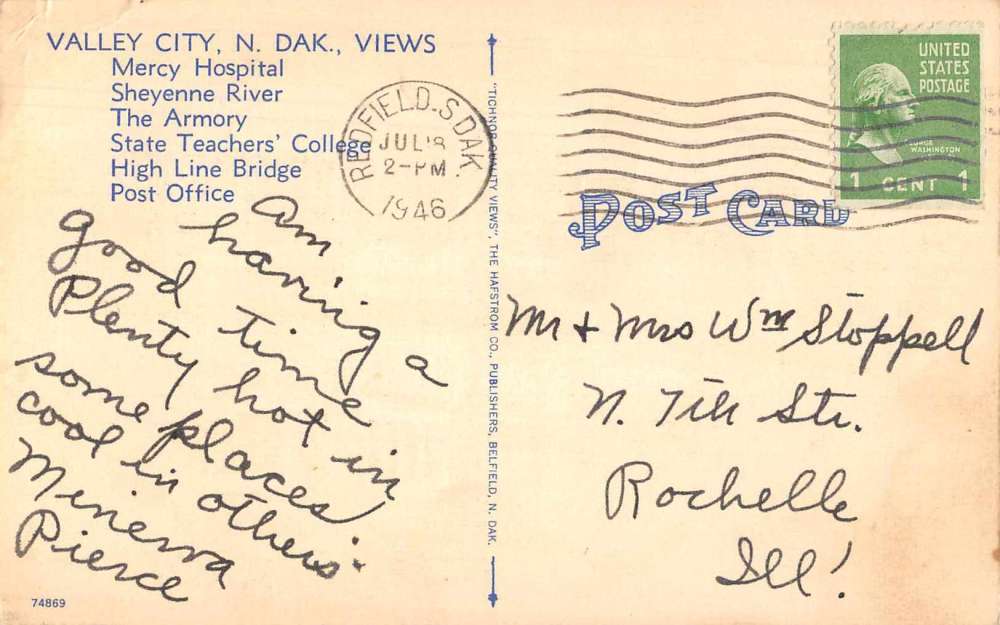 VALLEY CITY, N. DAK., VIEWS
Mercy Hospital
Sheyenne River
The Armory
State Teachers' College
High Line Bridge
Post Office
REDFIELD. S DAK.
JUL 8
2-PM
1946
UNITED
STATES
POSTAGE
GEORGE
WASHINGTON
1 CENT 1
POST CARD
am
having a
good time
Plenty hot in
some places
cool in others.
Minerva
Pierce
"TICHNOR QUALITY VIEWS", THE HAFSTROM CO., PUBLISHERS, BELFIELD, N. DAK.
Mr + Mrs Wm Stoppell
N. 7th Str.
Rochelle
Ill!
74869